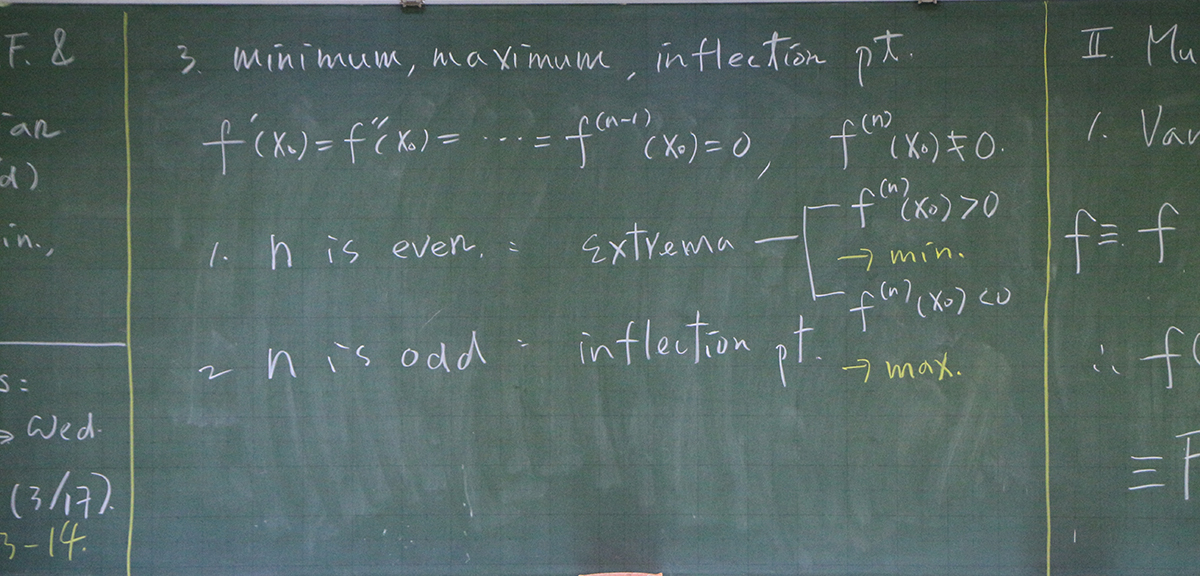 F. &
an
d)
in.,
s:
→ Wed.
(3/17).
3-14.
3. minimum, maximum, inflection pt.
f'(x₀) = f''(x₀) = ⋯ = f⁽ⁿ⁻¹⁾(x₀) = 0, f⁽ⁿ⁾(x₀) ≠ 0.
1. n is even. : extrema — f⁽ⁿ⁾(x₀) > 0
→ min.
f⁽ⁿ⁾(x₀) < 0
2 n is odd : inflection pt.
→ max.
II. Mu
1. Var
f ≡ f
∴ f(
≡ F